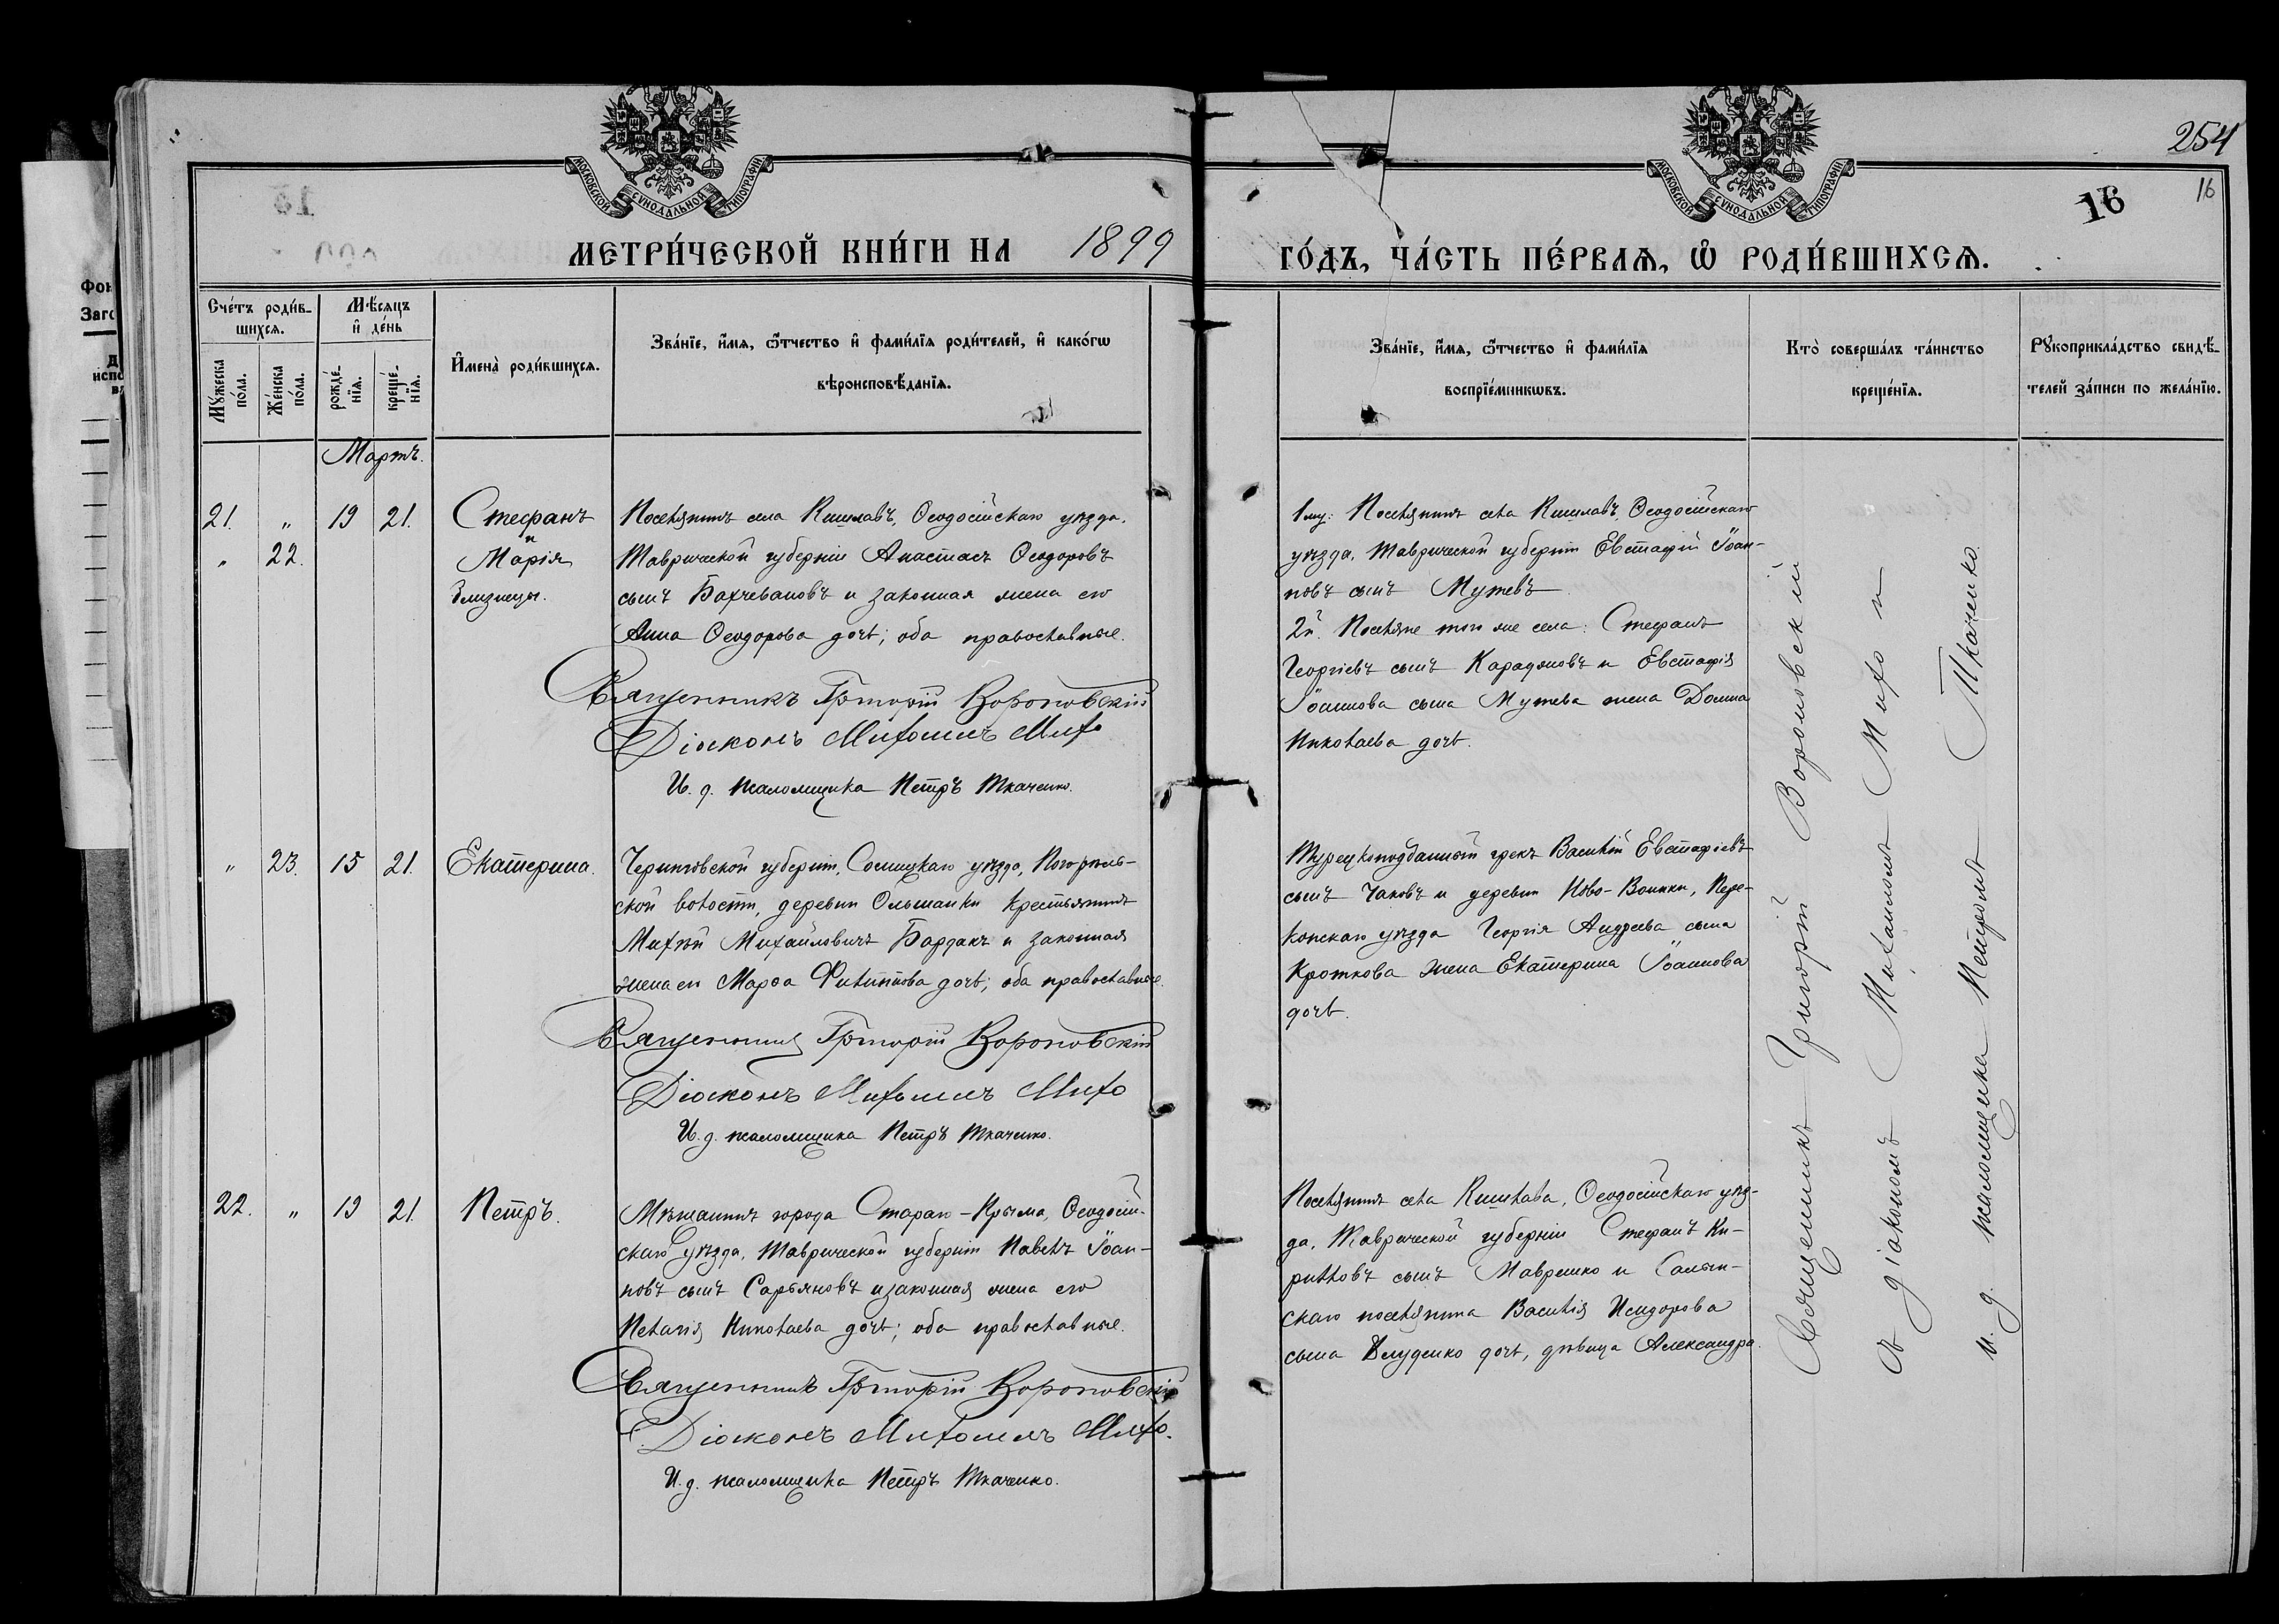 254
16
16
МОСКОВСКОЙ СѴНОДАЛЬНОЙ ТИПОГРАФІИ
МОСКОВСКОЙ СѴНОДАЛЬНОЙ ТИПОГРАФІИ
МЕТРИ́ЧЕСКОЙ КНИ́ГИ НА 1899
ГО́ДЪ, ЧА́СТЬ ПЕ́РВАѦ, Ѡ҆ РОДИ́ВШИХСѦ.
Сче́тъ роди́в-
шихсѧ.
Мꙋ́жеска по́ла.
Же́нска по́ла.
Мѣ́сѧцъ
и҆ де́нь
рожде́-
нїѧ.
креще́-
нїѧ.
И҆мена̀ роди́вшихсѧ.
Зва́нїе, и҆́мѧ, ѻ҆́тчество и҆ фами́лїѧ роди́телей, и҆ како́гѡ
вѣроисповѣ́данїѧ.
Зва́нїе, и҆́мѧ, ѻ҆́тчество и҆ фами́лїѧ
воспрїе́мникѡвъ.
Кто̀ соверша́лъ та́инство
креще́нїѧ.
Рꙋкоприкла́дство свидѣ́-
телей за́писи по жела́нїю.
Мартъ.
21. " 19 21. Стефанъ
и
" 22. Марія
близнецы.
Поселянинъ села Кишлавъ, Ѳеодосійскаго уѣзда,
Таврической губерніи Анастасъ Ѳеодоровъ
сынъ Бахчевановъ и законная жена его
Анна Ѳеодорова дочь; оба православные.
Священникъ Григорій Вороновскій
Діаконъ Михаилъ Михо
И. д. псаломщика Петръ Ткаченко.
1му: Поселянинъ села Кишлавъ, Ѳеодосійскаго
уѣзда, Таврической губерніи Евстафій Іоан-
новъ сынъ Мутевъ
2й. Поселяне того же села: Стефанъ
Георгіевъ сынъ Караджовъ и Евстафія
Іоаннова сына Мутева жена Домна
Николаева дочь.
" 23. 15 21. Екатерина.
Черниговской губерніи, Сосницкаго уѣзда, Погорѣль-
ской волости, деревни Ольшанки крестьянинъ
Михѣй Михайловичъ Бардакъ и законная
жена его Марѳа Филиппова дочь; оба православные.
Священникъ Григорій Вороновскій
Діаконъ Михаилъ Михо
И. д. псаломщика Петръ Ткаченко.
Турецкоподданный грекъ Василій Евстафіевъ
сынъ Чаковъ и деревни Ново-Воинки, Пере-
копскаго уѣзда Георгія Андреева сына
Кроткова жена Екатерина Іоаннова
дочь.
22. " 19 21. Петръ.
Мѣщанинъ города Стараго-Крыма, Ѳеодосій-
скаго уѣзда, Таврической губерніи Павелъ Іоан-
новъ сынъ Сарбяновъ и законная жена его
Пелагія Николаева дочь; оба православные.
Священникъ Григорій Вороновскій
Діаконъ Михаилъ Михо.
И. д. псаломщика Петръ Ткаченко.
Поселянинъ села Кишлава, Ѳеодосійскаго уѣз-
да, Таврической губерніи Стефанъ Ки-
рилловъ сынъ Маврешко и
скаго поселянина Василія Исидорова
сына дочь, дѣвица Александра.
Священникъ Григорій Вороновскій
съ діакономъ Михаиломъ Михо и
и. д. псаломщика Петромъ Ткаченко.